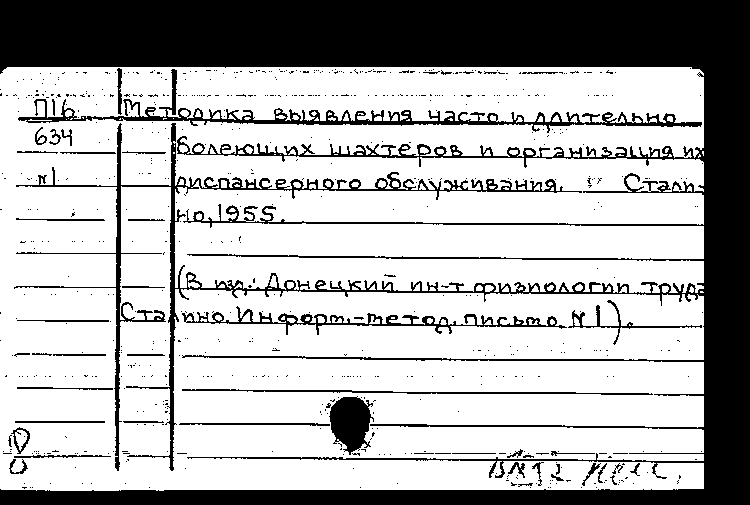 П16 Методика выявления часто и длительно
634 болеющих шахтеров и организация их
№1 диспансерного обслуживания. Стали-
но, 1955.
(В изд.: Донецкий ин-т физиологии труда
Сталино. Информ.-метод. письмо № 1).